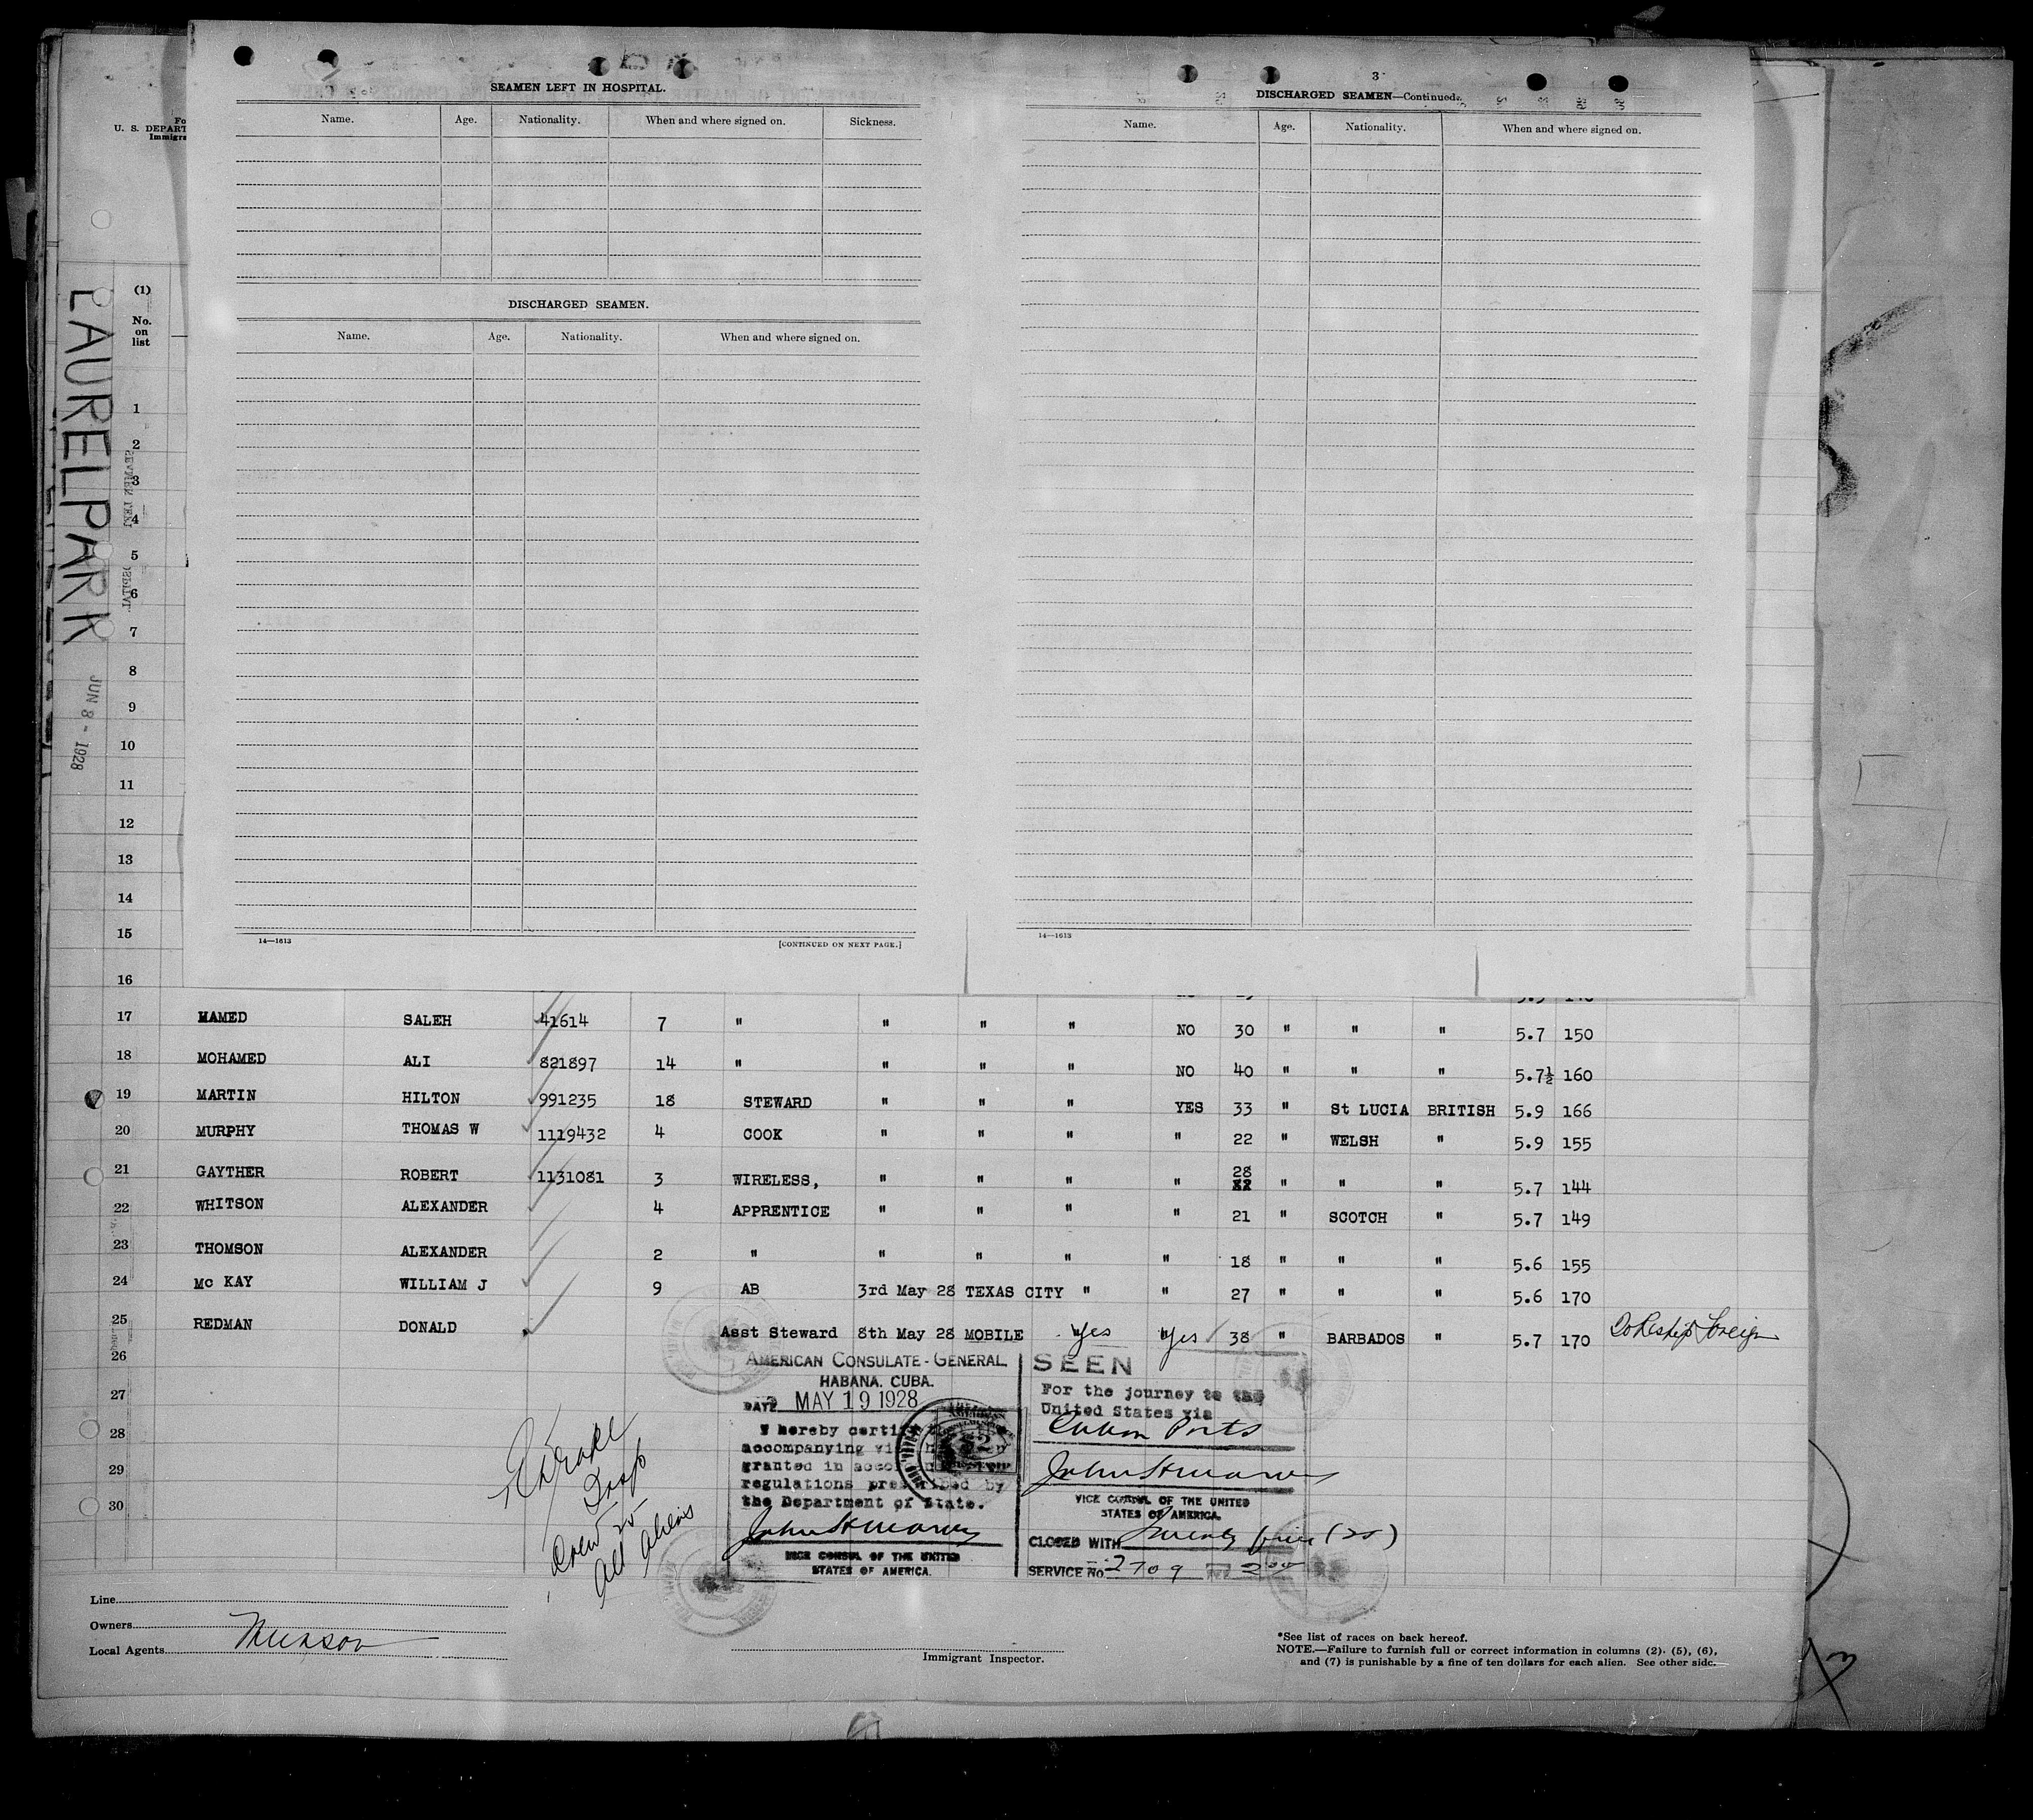 SEAMEN LEFT IN HOSPITAL.
Name. Age. Nationality. When and where signed on. Sickness.
DISCHARGED SEAMEN.
Name. Age. Nationality. When and where signed on.
14—1613 [CONTINUED ON NEXT PAGE.]
3
DISCHARGED SEAMEN—Continued.
Name. Age. Nationality. When and where signed on.
14—1613
U. S. DEPART
Immigra
LAURELPARK
JUN 8 - 1928
(1)
No.
on
list
1
2
3
4
5
6
7
8
9
10
11
12
13
14
15
16
17 MAMED SALEH 41614 7 " " " " NO 30 " " " 5.7 150
18 MOHAMED ALI 821897 14 " " " " NO 40 " " " 5.7½ 160
19 MARTIN HILTON 991235 18 STEWARD " " " YES 33 " St LUCIA BRITISH 5.9 166
20 MURPHY THOMAS W 1119432 4 COOK " " " " 22 " WELSH " 5.9 155
21 GAYTHER ROBERT 1131081 3 WIRELESS, " " " " 28 " " " 5.7 144
22 WHITSON ALEXANDER 4 APPRENTICE " " " " 21 " SCOTCH " 5.7 149
23 THOMSON ALEXANDER 2 " " " " " 18 " " " 5.6 155
24 Mc KAY WILLIAM J 9 AB 3rd May 28 TEXAS CITY " " 27 " " " 5.6 170
25 REDMAN DONALD Asst Steward 8th May 28 MOBILE Yes Yes 38 " BARBADOS " 5.7 170 Foreign
26
27
28
29
30
AMERICAN CONSULATE-GENERAL
HABANA. CUBA.
DATE MAY 19 1928
I hereby certify
accompanying
granted in
regulations prescribed by
the Department of State.
VICE CONSUL OF THE UNITED
STATES OF AMERICA.
SEEN
For the journey to the
United States via
Cuban Ports
VICE CONSUL OF THE UNITED
STATES OF AMERICA.
CLOSED WITH Twenty five (25)
SERVICE No. 2709
Crew 25
All Aliens
Line
Owners
Local Agents Munson
Immigrant Inspector.
*See list of races on back hereof.
NOTE.—Failure to furnish full or correct information in columns (2), (5), (6),
and (7) is punishable by a fine of ten dollars for each alien. See other side.